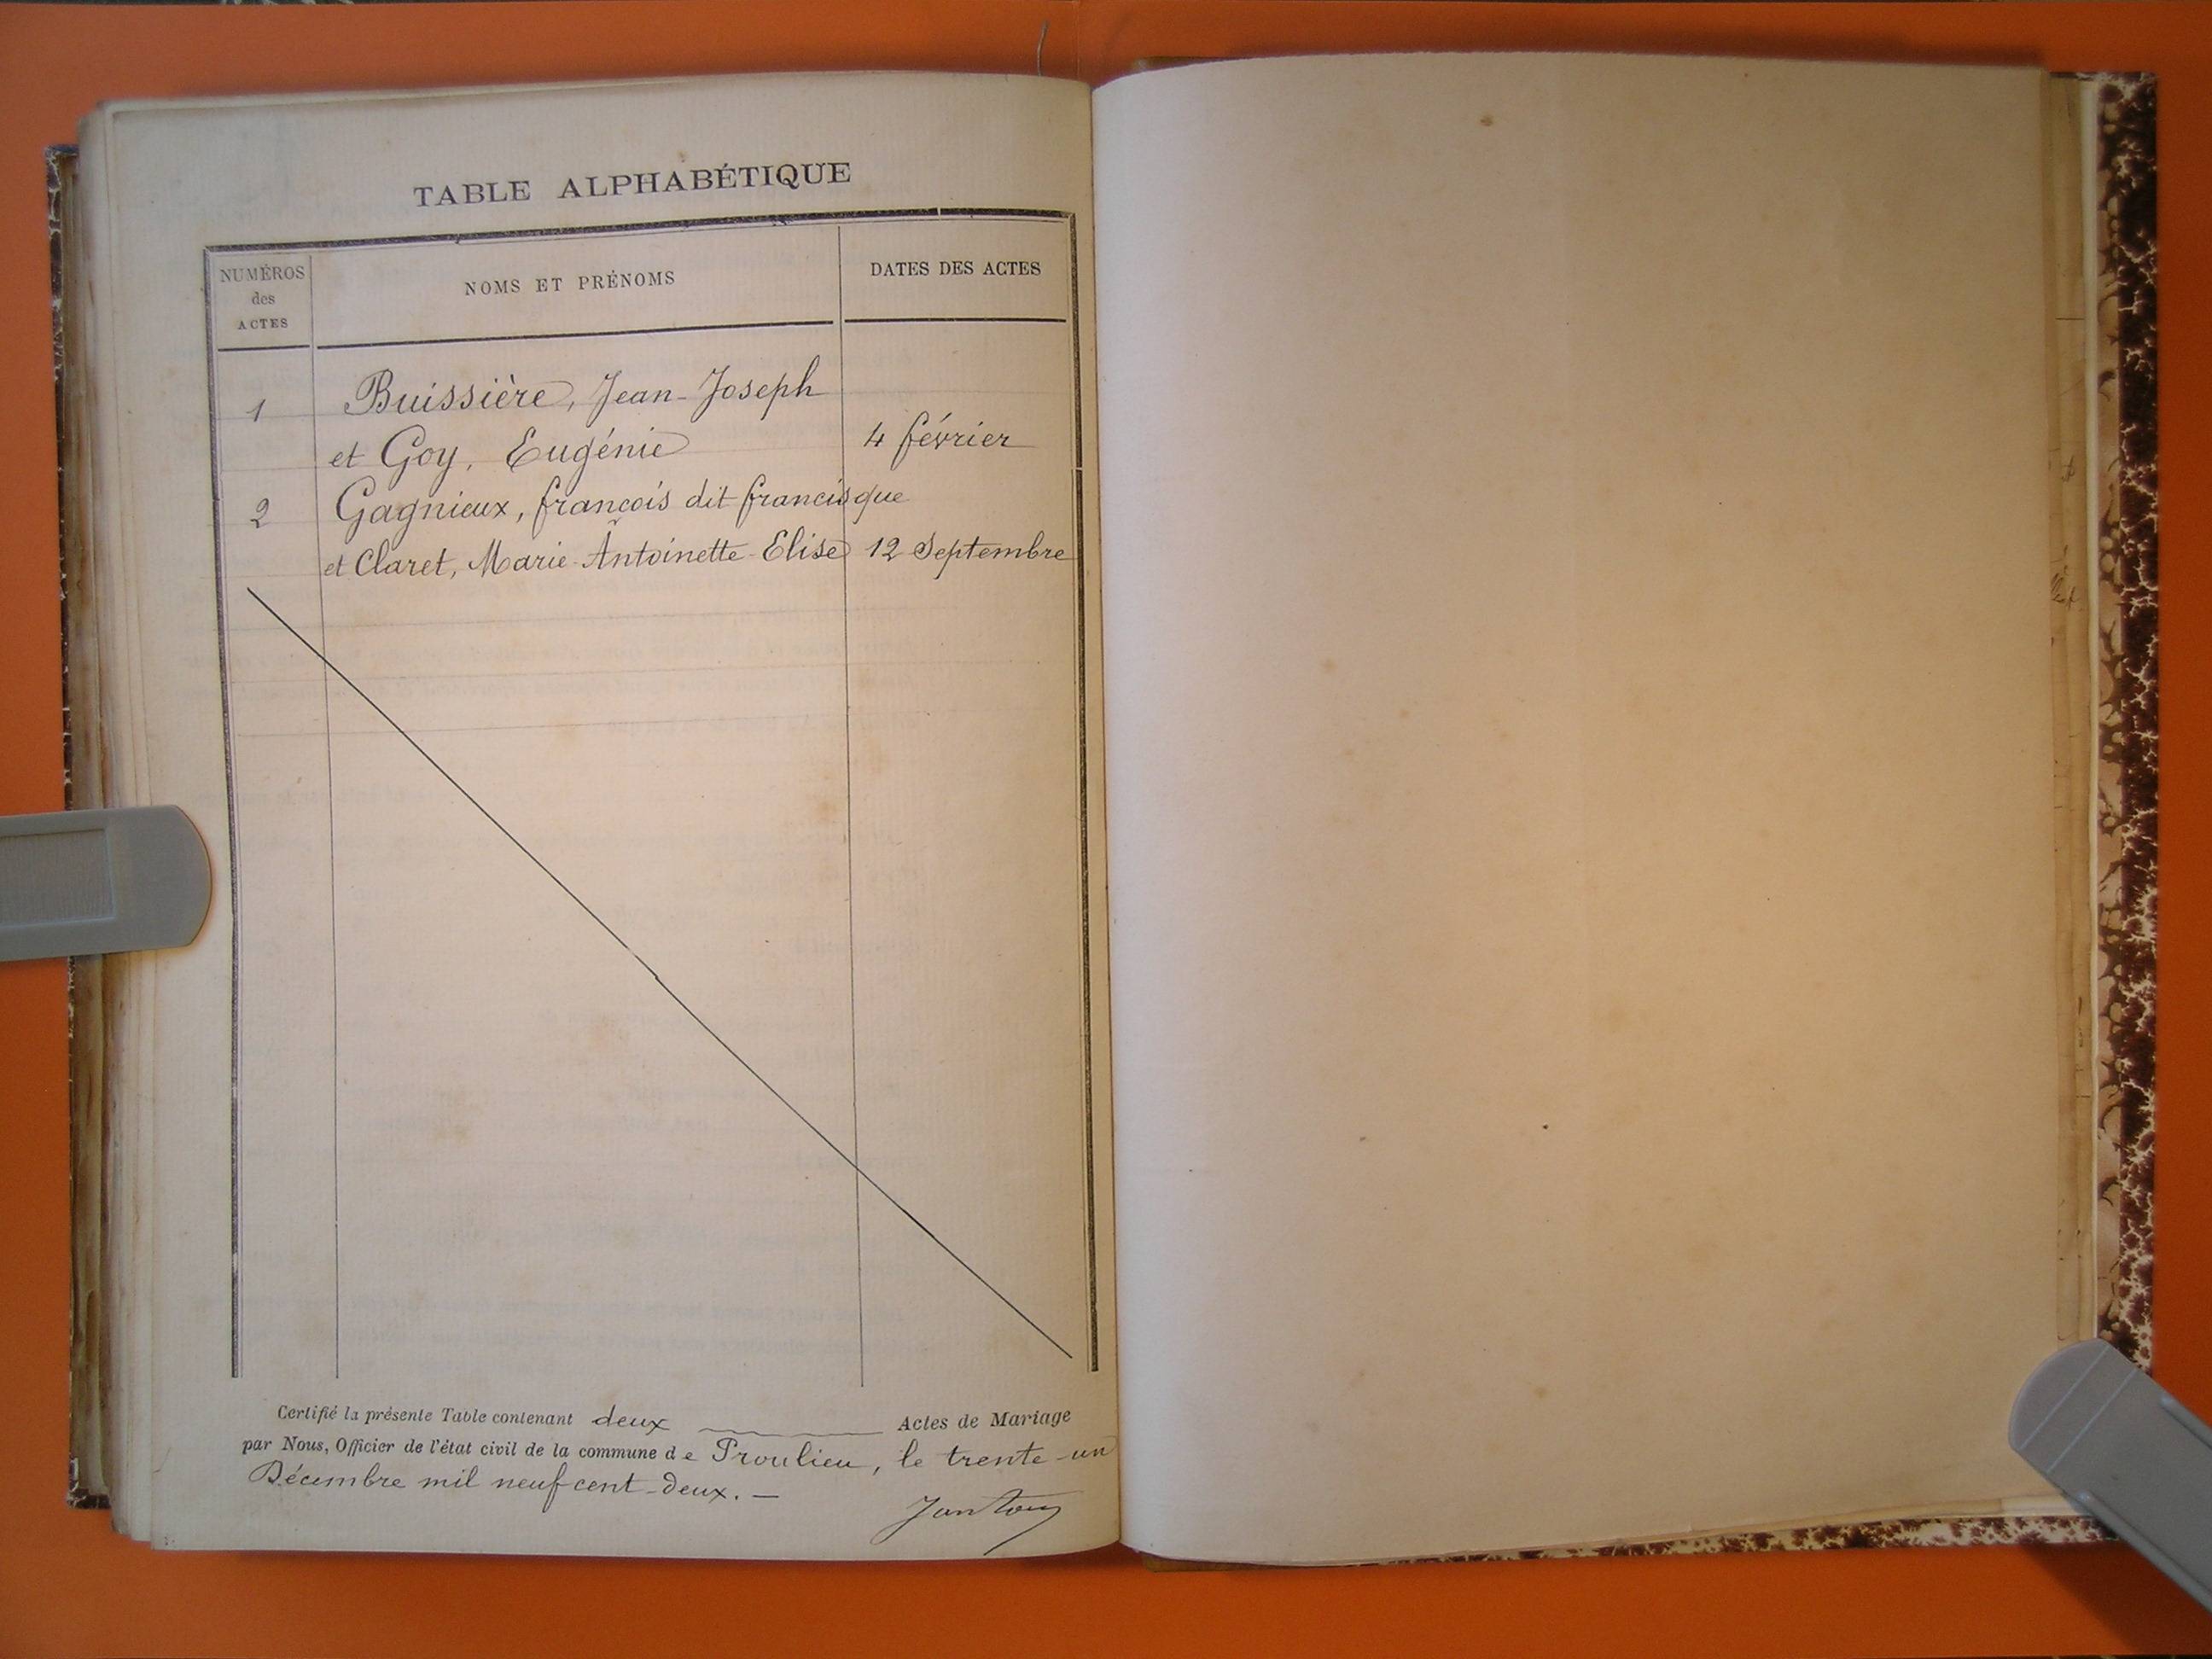 TABLE ALPHABÉTIQUE
NUMÉROS
des
ACTES
NOMS ET PRÉNOMS
DATES DES ACTES
1 Buissière, Jean-Joseph
et Goy, Eugénie 4 février
2 Gagnieux, françois dit francisque
et Claret, Marie-Antoinette-Elise 12 Septembre
Certifié la présente Table contenant deux Actes de Mariage
par Nous, Officier de l'état civil de la commune de Proulieu, le trente-un
Décembre mil neuf cent-deux. —